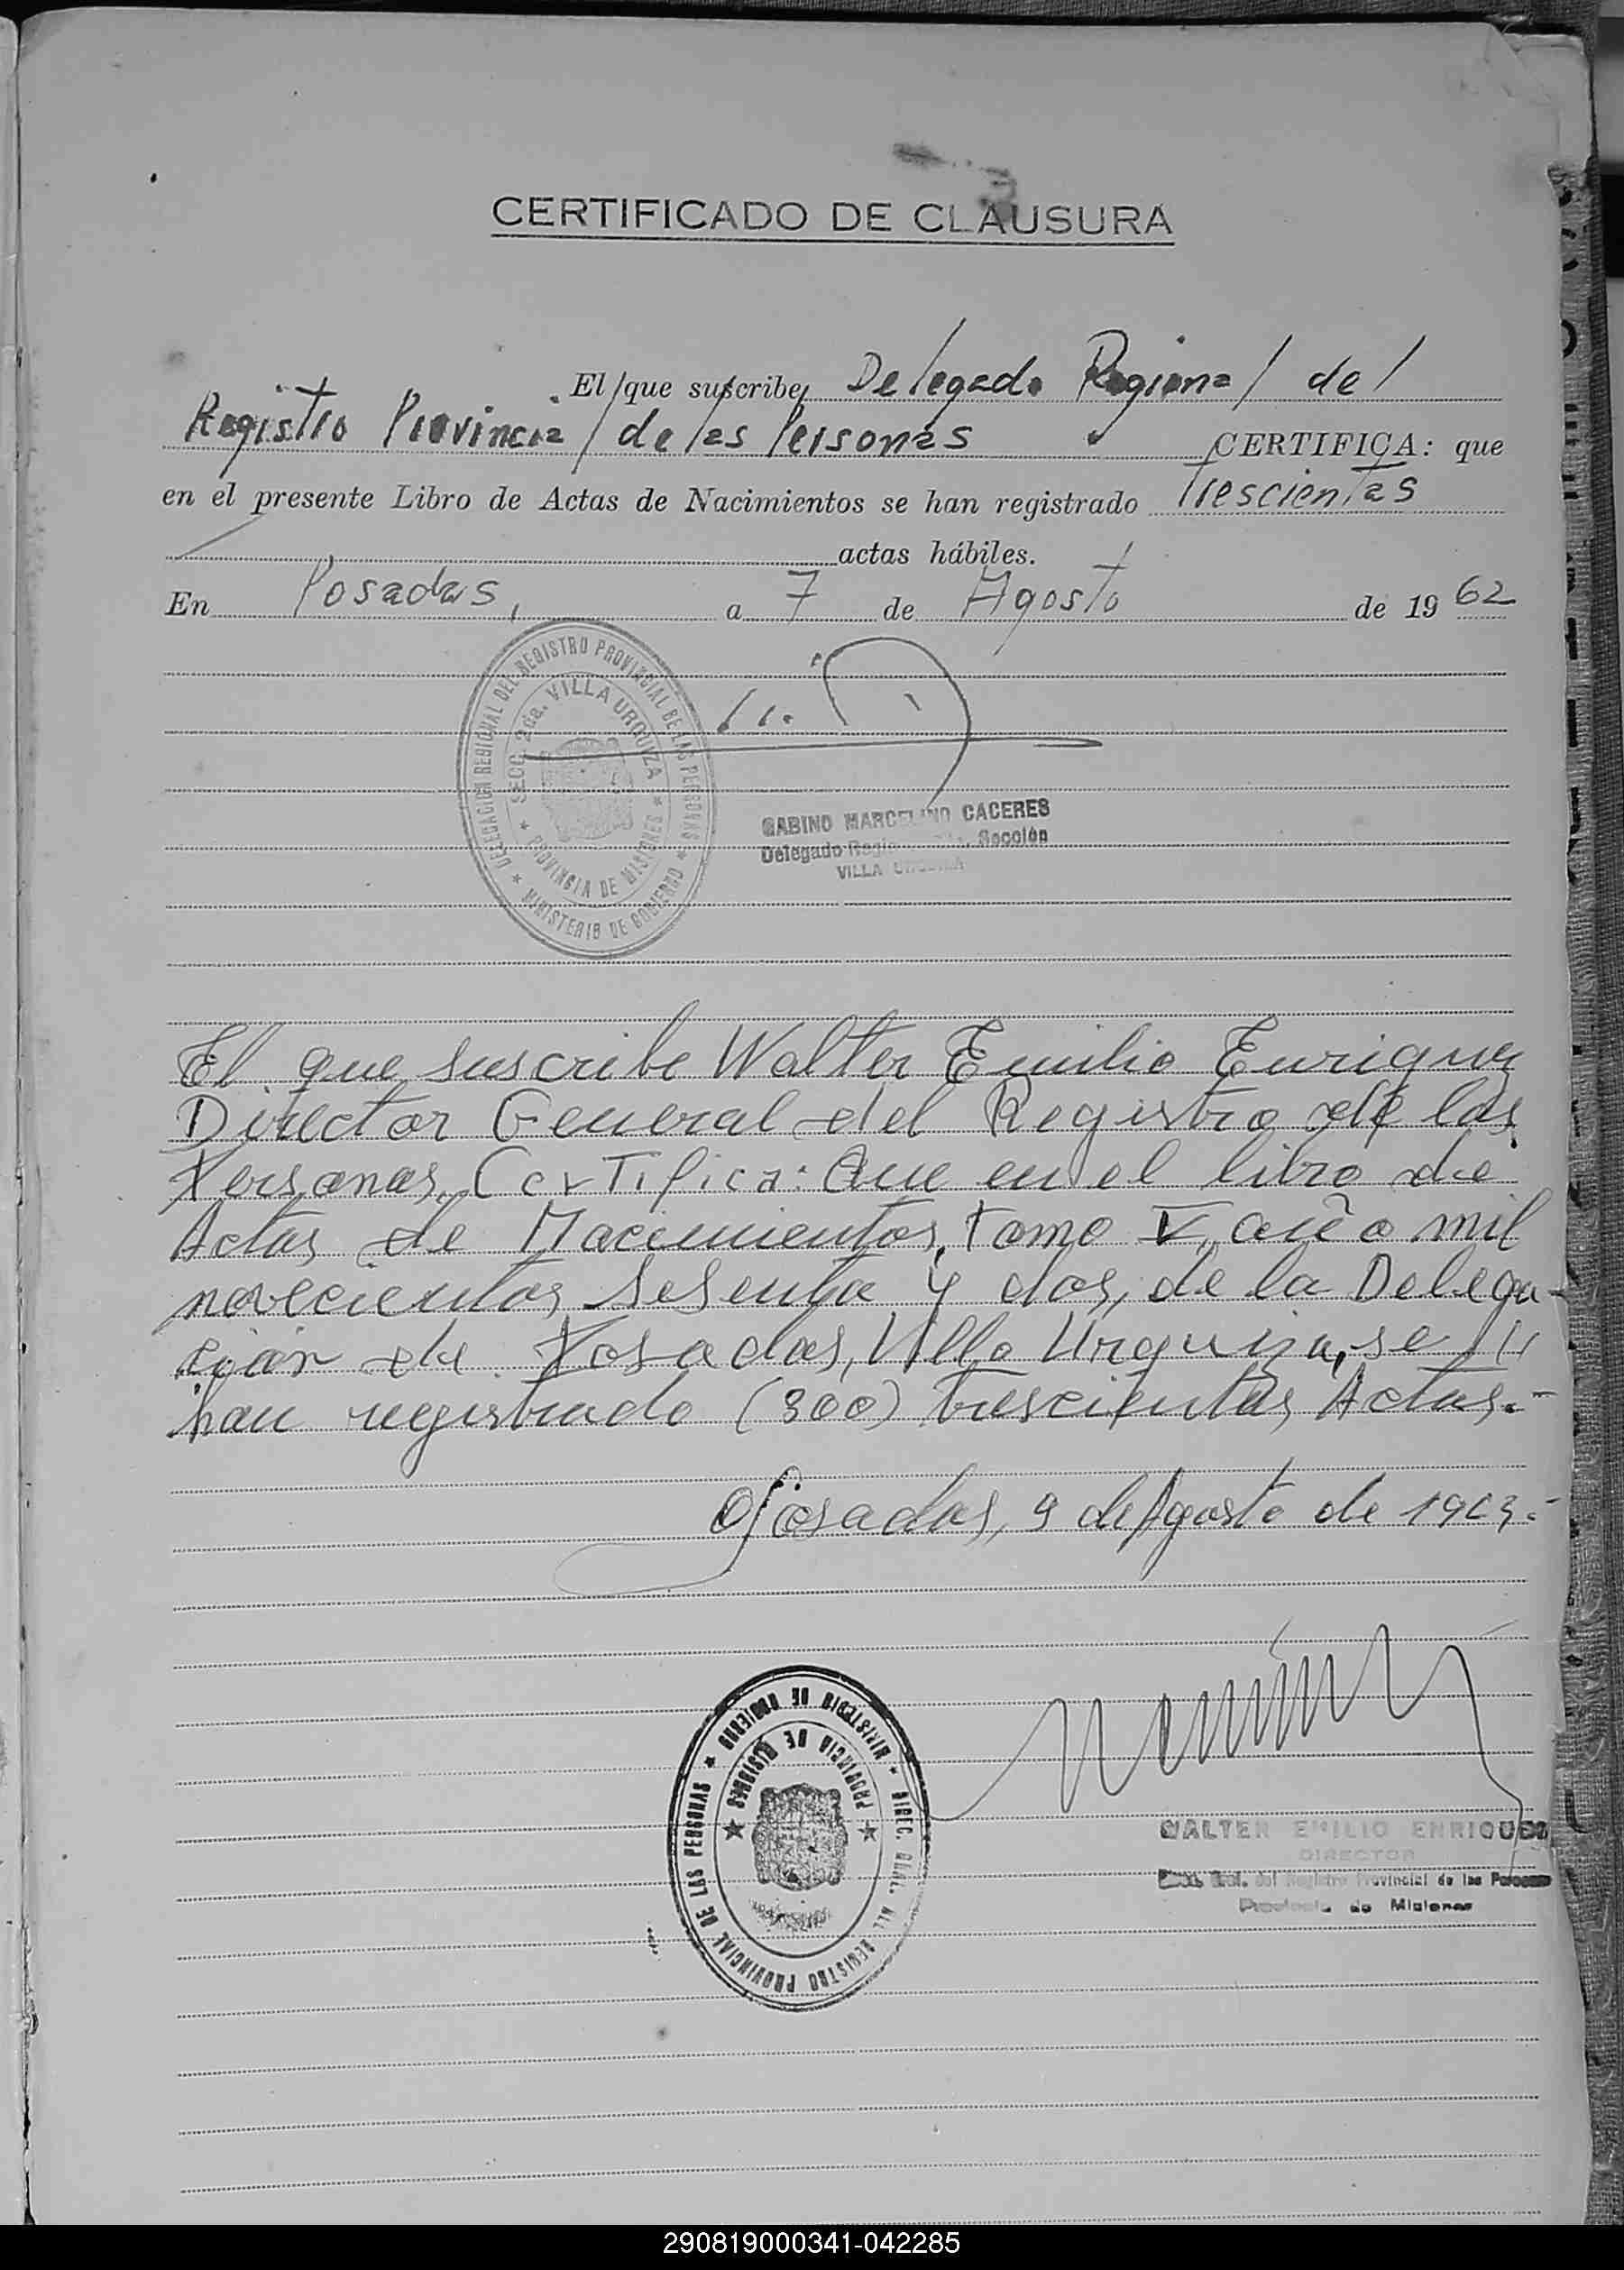 CERTIFICADO DE CLAUSURA
El que suscribe, Delegado Regional del
Registro Provincial de las Personas CERTIFICA: que
en el presente Libro de Actas de Nacimientos se han registrado trescientas
actas hábiles.
En Posadas, a 7 de Agosto de 19 62
DELEGACION REGIONAL DEL REGISTRO PROVINCIAL DE LAS PERSONAS
★ MINISTERIO DE GOBIERNO ★
SECC. 2da. VILLA URQUIZA
★ PROVINCIA DE MISIONES ★
GABINO MARCELINO CACERES
Delegado Sección
VILLA URQUIZA
El que suscribe Walter Emilio Enriquez
Director General del Registro de las
Personas, Certifica: Que en el libro de
Actas de Nacimientos, tomo V, año mil
novecientos sesenta y dos, de la Delega-
ción de Posadas, Villa Urquiza, se //
han registrado (300) trescientas Actas.-
Posadas, 9 de Agosto de 1963.-
MINISTERIO DE GOBIERNO
★ DIREC. GRAL. DEL REGISTRO PROVINCIAL DE LAS PERSONAS ★
★ PROVINCIA DE MISIONES ★
WALTER EMILIO ENRIQUEZ
DIRECTOR
Gral. del Registro Provincial de las Personas
Provincia de Misiones
290819000341-042285